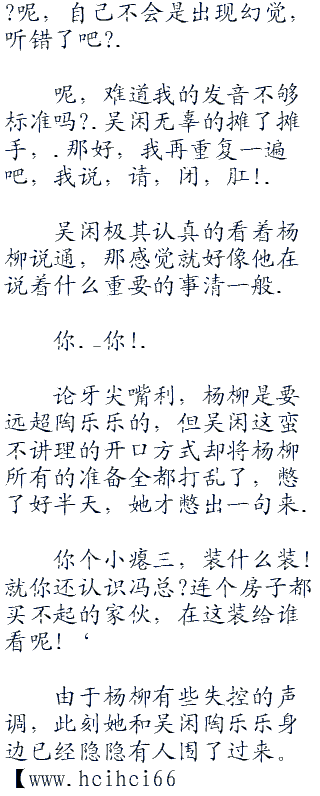 ?呢，自己不会是出现幻觉，
听错了吧?.
呢，难道我的发音不够
标准吗?.吴闲无辜的摊了摊
手，.那好，我再重复一遍
吧，我说，请，闭，肛!.
吴闲极其认真的看着杨
柳说通，那感觉就好像他在
说着什么重要的事清一般.
你._你!.
论牙尖嘴利，杨柳是要
远超陶乐乐的，但吴闲这蛮
不讲理的开口方式却将杨柳
所有的准备全都打乱了，憋
了好半天，她才憋出一句来.
你个小瘪三，装什么装!
就你还认识冯总?连个房子都
买不起的家伙，在这装给谁
看呢!‘
由于杨柳有些失控的声
调，此刻她和吴闲陶乐乐身
边已经隐隐有人围了过来。
【www.hcihci66